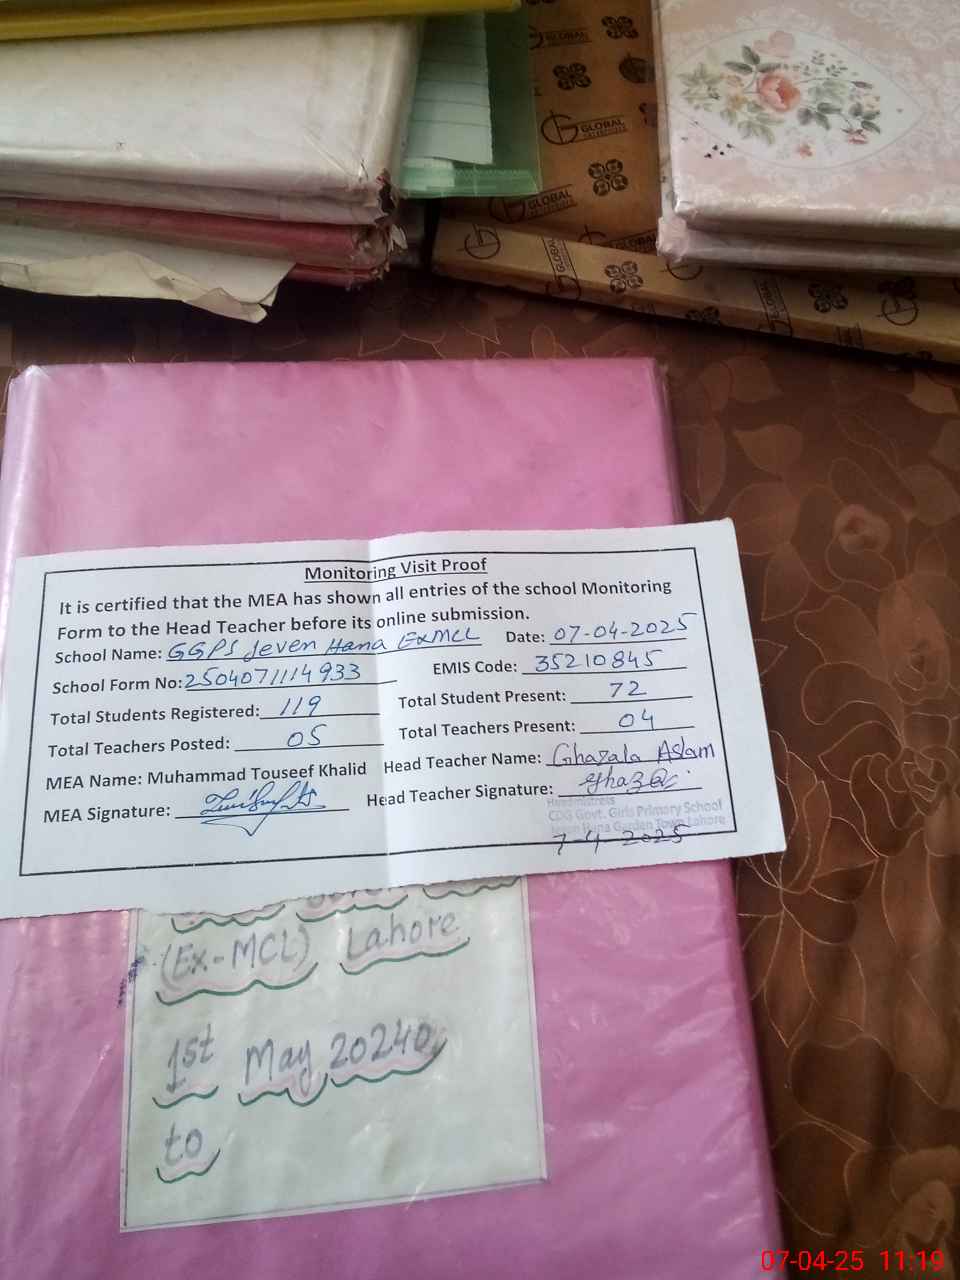 GLOBAL
GLOBAL
GLOBAL
GLOBAL
GLOBAL
GLOBAL
Monitoring Visit Proof
It is certified that the MEA has shown all entries of the school Monitoring
Form to the Head Teacher before its online submission.
School Name: GGPS Jeven Hana ExMCL Date: 07-04-2025
School Form No: 2504071114933 EMIS Code: 35210845
Total Students Registered: 119 Total Student Present: 72
Total Teachers Posted: 05 Total Teachers Present: 04
MEA Name: Muhammad Touseef Khalid Head Teacher Name: Ghazala Aslam
MEA Signature: Head Teacher Signature:
Headmistress
CDG Govt. Girls Primary School
Hana Garden Town Lahore
7-4-2025
(Ex-MCL) Lahore
1st May 20240
to
07-04-25 11:19